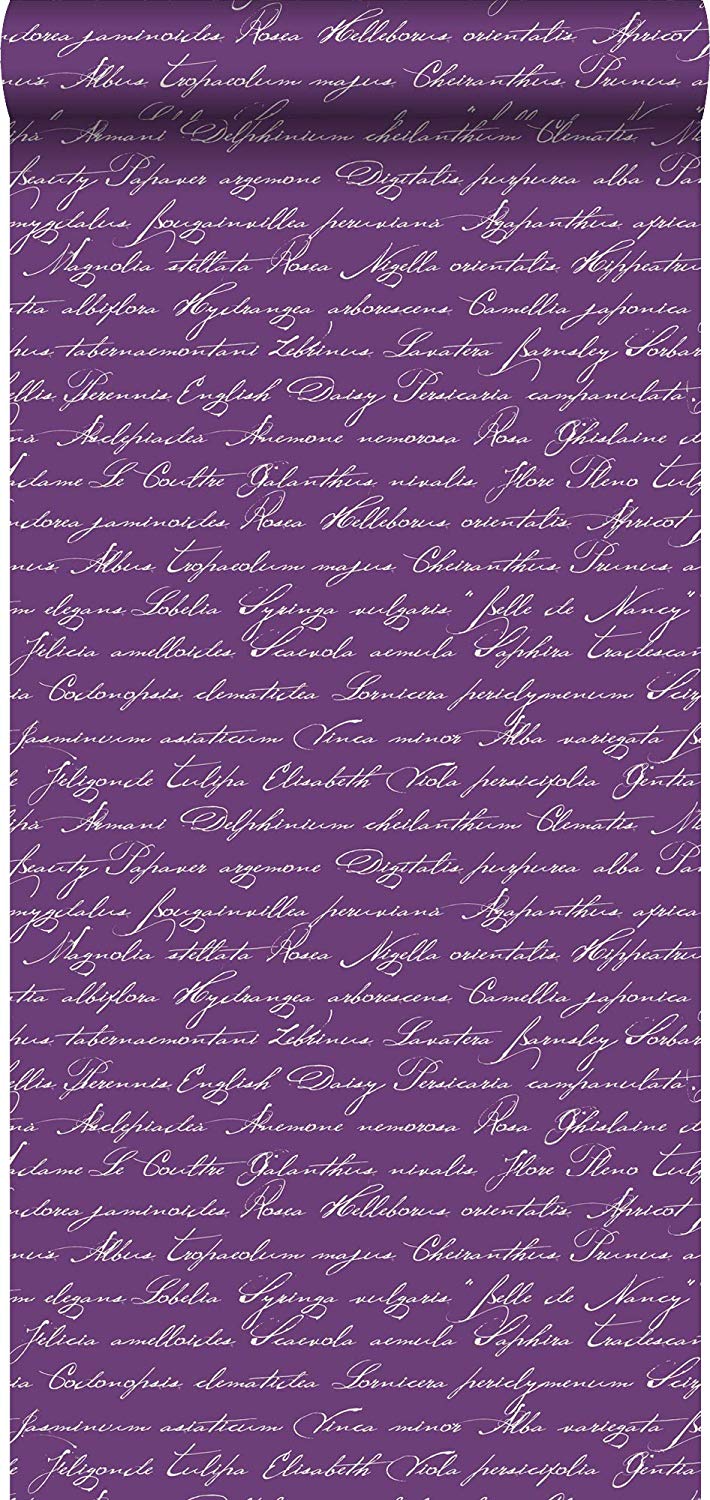 dorea jaminoides Rosea Helleborus orientalis Apricot
nus Albus Tropaeolum majus Cheiranthus Prunus a
ipa Armani Delphinium cheilanthum Clematis
Beauty Papaver argemone Digitalis purpurea alba Pa
mygdalus Bougainvillea peruviana Agapanthus africa
Magnolia stellata Rosea Nigella orientalis Hippeatru
tia albiflora Hydrangea arborescens Camellia japonica
hus tabernaemontani Zebrinus Lavatera Barnsley Sorbar
ellis Perennis English Daisy Persicaria campanulata
na Asclepiadea Anemone nemorosa Rosa Ghislaine d
adame Le Coultre Galanthus nivalis Flore Pleno Tulp
dorea jaminoides Rosea Helleborus orientalis Apricot
nus Albus Tropaeolum majus Cheiranthus Prunus a
m elegans Lobelia Syringa vulgaris "Belle de Nancy"
Felicia amelloides Scaevola aemula Saphira Tradescan
ia Codonopsis clematidea Lornicera periclymenum Scirp
Jasminum asiaticum Vinca minor Alba variegata B
e Feligonde Tulipa Elisabeth Viola persicifolia Gentia
ipa Armani Delphinium cheilanthum Clematis
Beauty Papaver argemone Digitalis purpurea alba Pa
mygdalus Bougainvillea peruviana Agapanthus africa
Magnolia stellata Rosea Nigella orientalis Hippeatru
tia albiflora Hydrangea arborescens Camellia japonica
hus tabernaemontani Zebrinus Lavatera Barnsley Sorbar
ellis Perennis English Daisy Persicaria campanulata
na Asclepiadea Anemone nemorosa Rosa Ghislaine d
adame Le Coultre Galanthus nivalis Flore Pleno Tulp
dorea jaminoides Rosea Helleborus orientalis Apricot
nus Albus Tropaeolum majus Cheiranthus Prunus a
m elegans Lobelia Syringa vulgaris "Belle de Nancy"
Felicia amelloides Scaevola aemula Saphira Tradescan
ia Codonopsis clematidea Lornicera periclymenum Scirp
Jasminum asiaticum Vinca minor Alba variegata B
e Feligonde Tulipa Elisabeth Viola persicifolia Gentia